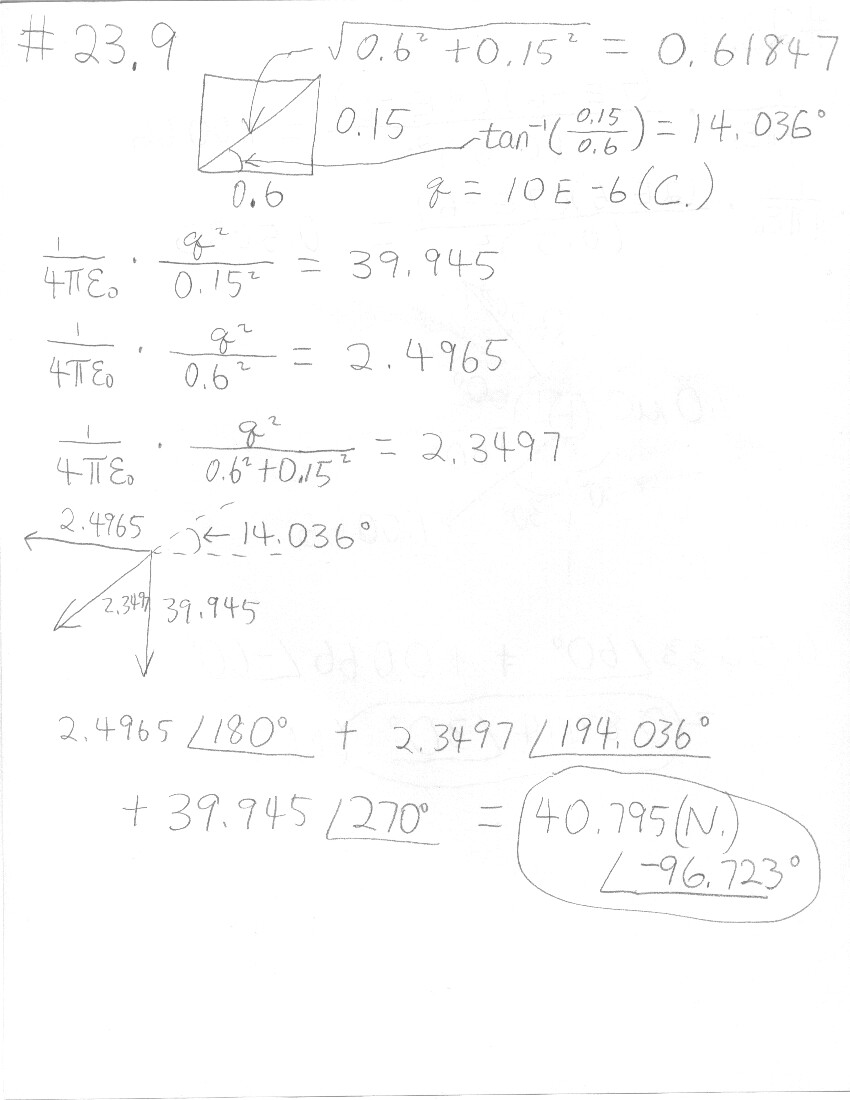 # 23.9
√0.6² + 0.15² = 0.61847
0.15
tan⁻¹(0.15/0.6) = 14.036°
0.6
q = 10E-6 (C.)
1/4πε₀ · q²/0.15² = 39.945
1/4πε₀ · q²/0.6² = 2.4965
1/4πε₀ · q²/0.6²+0.15² = 2.3497
2.4965
←14.036°
2.3497
39.945
2.4965 ∠180° + 2.3497 ∠194.036°
+ 39.945 ∠270° = 40.795 (N.)
∠-96.723°